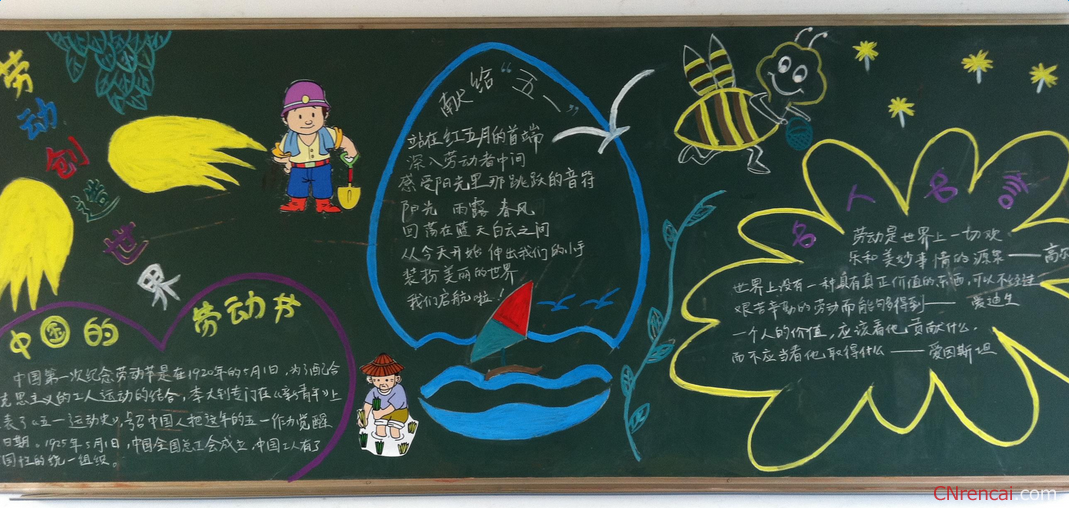 劳动创造世界
中国的劳动节
中国第一次纪念劳动节是在1920年的5月1日，为了配合
克思主义的工人运动的结合，李大钊专门在《新青年》上
表了《五一运动史》，号召中国人把这年的五一作为觉醒
日期。1925年5月1日，中国全国总工会成立，中国工人有了
的统一组织。
献给“五一”
站在红五月的首端
深入劳动者中间
感受阳光里那跳跃的音符
阳光 雨露 春风
回荡在蓝天白云之间
从今天开始 伸出我们的小手
装扮美丽的世界
我们启航啦！
名人名言
劳动是世界上一切欢
乐和美妙事情的源泉——高尔
世界上没有一种具有真正价值的东西，可以不经过
艰苦辛勤的劳动而能够得到——爱迪生
一个人的价值，应该看他贡献什么
而不应当看他取得什么——爱因斯坦
CNrencai.com